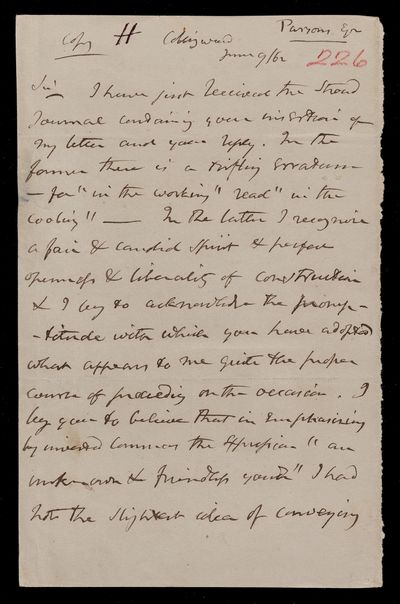 Parsons Esqr
Copy H Collingwood
June 9/62 226
Sir, I have just received the
Journal containing your insertion of
my letter and your reply. In the
former there is a trifling Erratum
– for "in the working" read "in the
cooling" — In the latter I recognise
a fair & candid spirit & perfect
openness & liberality of construction
& I beg to acknowledge the promp-
-titude with which you have adopted
what appears to me quite the proper
course of proceeding on the occasion. I
beg you to believe that in emphasizing
by inverted commas the Expression "an
unknown & friendless youth" I had
not the slightest idea of conveying